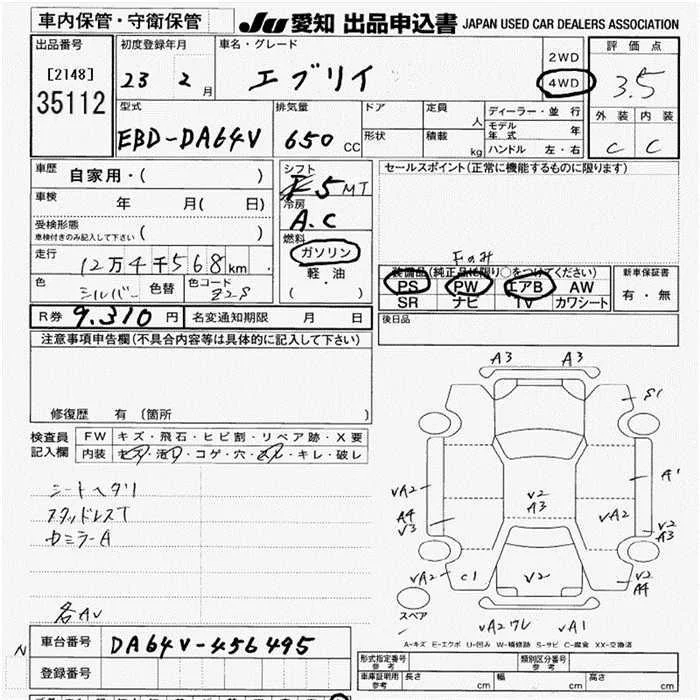 車内保管・守衛保管
JU 愛知 出品申込書 JAPAN USED CAR DEALERS ASSOCIATION
出品番号
[2148]
35112
初度登録年月
23 2 月
車名・グレード
エブリイ
2WD
4WD
評価点
3.5
外装 内装
C C
型式
EBD-DA64V
排気量
650 CC
ドア
形状
定員 人
積載 kg
ディーラー・並行
モデル年式 年
ハンドル 左・右
車歴
自家用・( )
車検
年 月( 日)
受検形態
車検付きのみ記入して下さい ( )
走行
12万4千568 km
色 シルバー 色替 色コード Z2S
シフト
F5 MT
冷房
A.C
燃料
ガソリン
軽油
( ・ )
セールスポイント(正常に機能するものに限ります)
Fのみ
装備品(純正品に限り○をつけてください)
PS PW エアB AW
SR ナビ TV カワシート
新車保証書
有・無
R券 9.310 円 名変通知期限 月 日
後日品
注意事項申告欄(不具合内容等は具体的に記入して下さい)
修復歴 有 (箇所 )
検査員記入欄
FW キズ・飛石・ヒビ割・リペア跡・X要
内装 キズ・汚れ・コゲ・穴・スレ・キレ・破レ
シートヘタリ
スタッドレスT
各AV
A3 A3
S1
VA2 A1
V2
A3
VA2
A4
V3
V2
A3
VA2 C1 V2 V2
A4
VA2ワレ VA1
スペア
A-キズ E-エクボ U-凹み W-補修跡 S-サビ C-腐食 XX-交換済
N
車台番号 DA64V-456495
登録番号
形式指定番号
参考
類別区分番号
参考
車庫証明用
参考
長さ cm 幅 cm 高さ cm